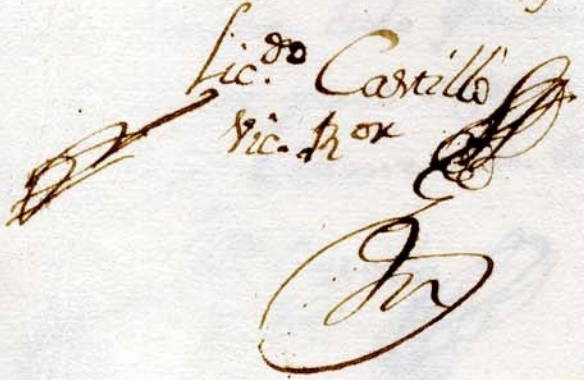 Lic.do Castillo
Vic. Ror